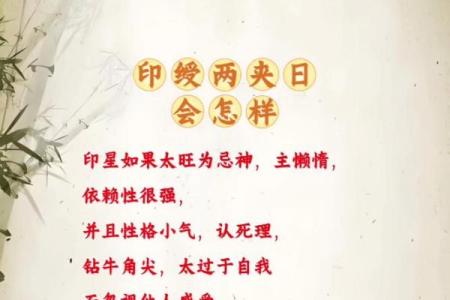 印绶两夹日
会怎样
印星如果太旺为忌神，主懒惰，
依赖性很强，
并且性格小气，认死理，
钻牛角尖，太过于自我